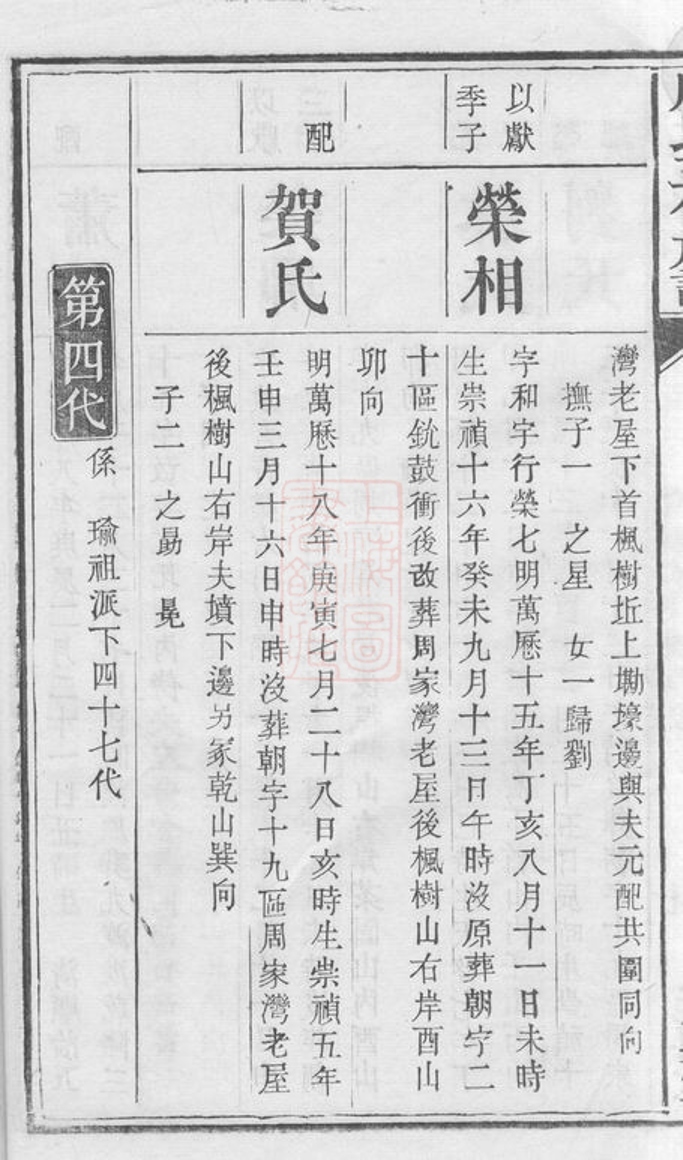 灣老屋下首楓樹坵上墈壕邊與夫元配共圍同向
撫子一 之星 女一歸劉
以獻
季子
榮相
字和宇行榮七明萬曆十五年丁亥八月十一日未時
生崇禎十六年癸未九月十三日午時沒原葬朝字二
十區銃鼓衝後改葬周家灣老屋後楓樹山右岸酉山
卯向
配
賀氏
明萬曆十八年庚寅七月二十八日亥時生崇禎五年
壬申三月十六日申時沒葬朝字十九區周家灣老屋
後楓樹山右岸夫墳下邊另冢乾山巽向
子二 之勗 晃
第四代
係 瑜祖派下四十七代